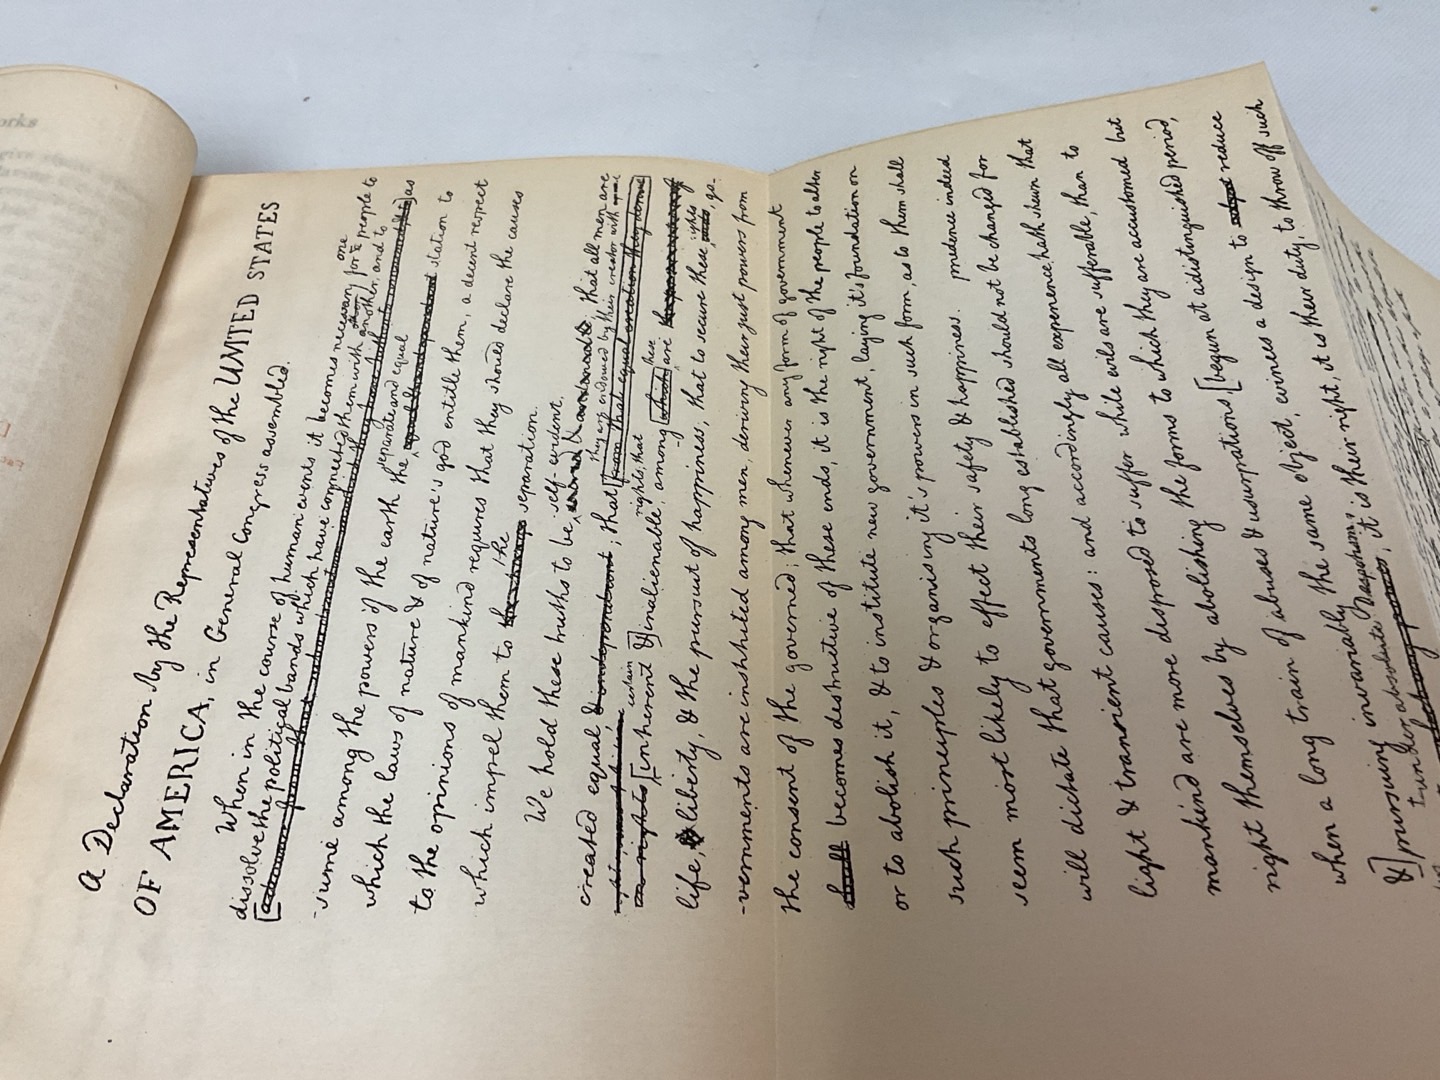 orks
A Declaration by the Representatives of the UNITED STATES
OF AMERICA, in General Congress assembled.
When in the course of human events it becomes necessary for one people to
dissolve the political bands which have connected them with another, and to
as
-sume among the powers of the earth the separate and equal station to
which the laws of nature & of nature's god entitle them, a decent respect
to the opinions of mankind requires that they should declare the causes
which impel them to the separation.
We hold these truths to be self-evident: that all men are
created equal & independant; that they are endowed by their creator with
from that equal creation they derive
[inherent & certain inalienable rights; that among which these are
life, liberty, & the pursuit of happiness; that to secure these rights, go-
-vernments are instituted among men, deriving their just powers from
the consent of the governed; that whenever any form of government
shall becomes destructive of these ends, it is the right of the people to alter
or to abolish it, & to institute new government, laying it's foundation on
such principles & organising it's powers in such form, as to them shall
seem most likely to effect their safety & happiness. prudence indeed
will dictate that governments long established should not be changed for
light & transient causes: and accordingly all experience hath shewn that
mankind are more disposed to suffer while evils are sufferable, than to
right themselves by abolishing the forms to which they are accustomed but
when a long train of abuses & usurpations, [begun at a distinguished period,
&] pursuing invariably the same object, evinces a design to reduce
them under absolute Despotism, it is their right, it is their duty, to throw off such